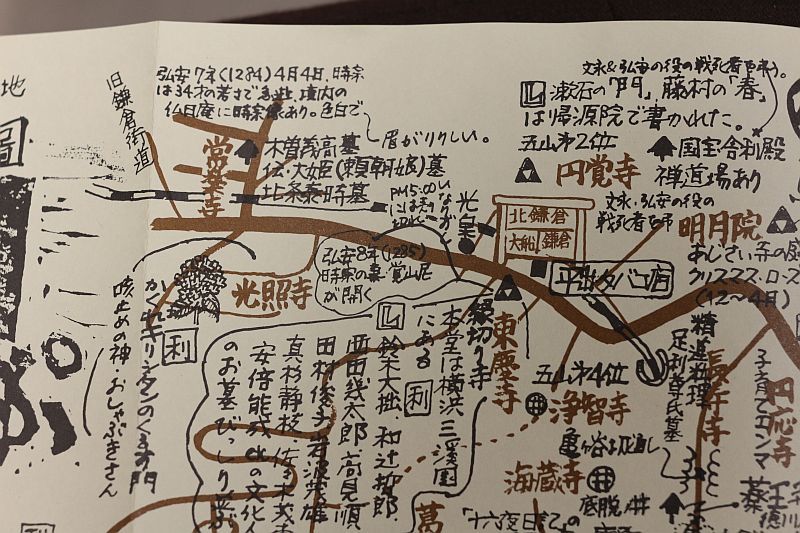 地
図
旧鎌倉街道
弘安7年(1284)4月4日、時宗
は34才の若さで急逝、境内の
仏日庵に時宗像あり。色白で
眉がりりしい。
常楽寺
木曽義高墓
伝・大姫(頼朝娘)墓
北条泰時墓
光照寺
弘安8年(1285)
時宗の妻・覚山尼
が開く
かくれキリシタンのくるす門
咳止めの神・おしゃぶきさん
利
文永&弘安の役の戦死者を弔う。
漱石の「門」、藤村の「春」
は帰源院で書かれた。
五山第2位
円覚寺
国宝舎利殿
禅道場あり
文永、弘安の役の
戦死者を弔
明月院
あじさい寺の庭
クリスマス・ローズ
(12〜4月)
北鎌倉
大船
鎌倉
平出タバコ店
縁切り寺
東慶寺
本堂は横浜三溪園
にある
利
鈴木大拙 和辻哲郎
西田幾太郎 高見順
田村俊子 岩波茂雄
真杉静枝 佐々木茂索
安倍能成etcの文化人
のお墓びっしり
五山第4位
浄智寺
亀ヶ谷切通し
海蔵寺
底脱ノ井
「十六夜日記」の
精進料理
足利尊氏墓
長寿寺
円応寺
子育てエンマ
薬王寺
徳川
利